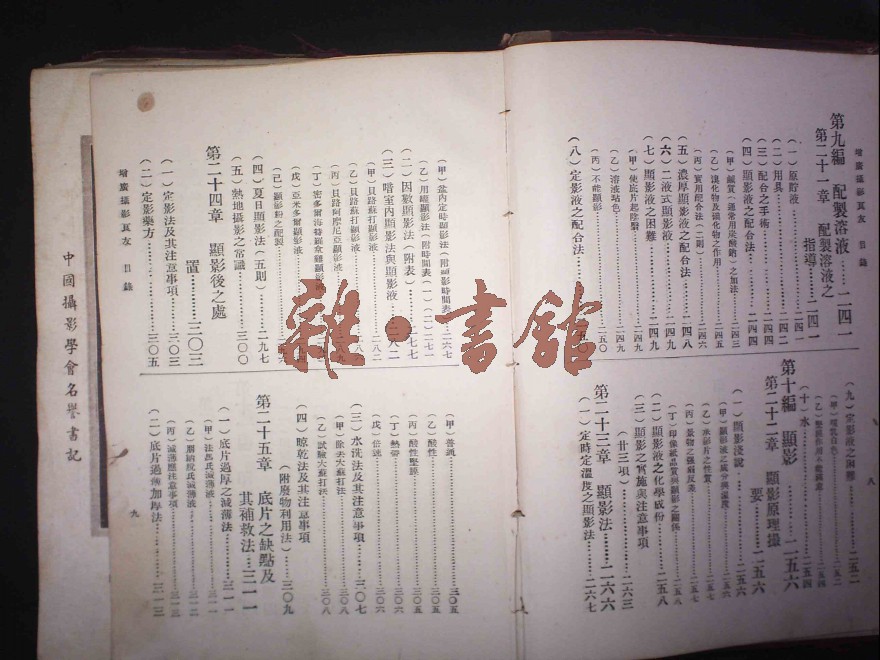 增廣攝影良友 目錄
第九編 配製溶液……二四一
第二十一章 配製溶液之
指導……二四一
(一)原貯液……二四一
(二)用具……二四二
(三)配合之手術……二四四
(四)顯影液之配合法……二四四
(甲)鹼質(通常用炭酸鈉)之加法……二四三
(乙)溴化物及碘化物之作用……二四五
(丙)實用配合法(二則)……二四六
(五)濃厚顯影液之配合法……二四八
(六)二液式顯影液……二四九
(七)顯影液之困難……二四九
(甲)使底片起陰翳
(乙)溶液呈色……二四九
(丙)不能顯影……二五〇
(八)定影液之配合法
八
(九)定影液之困難……二五二
(十)水……二五四
第十編 顯影……二五六
第二十二章 顯影原理撮
要……二五六
(一)顯影淺說……二五六
(乙)水彩片之性質
(丙)景物之強弱反差
(丁)印像紙品質與顯影之關係……二五八
(二)顯影液之化學成份……二五八
(三)顯影之實施與注意事項
(廿三項)……二六三
第二十三章 顯影法……二六六
(一)定時定溫度之顯影法……二六七
(甲)盆內定時顯影法(附顯影時間表)……二六七
(乙)用罐顯影法(附時間表(一)(二)……二七一
(二)因數顯影法(附表)……二七七
(三)暗室內顯影法與顯影液……二八二
(甲)貝路蘇打顯影液……二八二
(乙)貝路蘇打顯影液
(丙)貝路阿摩尼亞顯影液
(丁)密多爾海特羅拿鷄顯影液
(戊)亞米多爾顯影液
(己)顯影粉之配製
(四)夏日顯影法(五則)……二九七
(五)熱地攝影之常識……三〇〇
第二十四章 顯影後之處
置……三〇三
(一)定影法及其注意事項……三〇三
(二)定影藥方……三〇五
增廣攝影良友 目錄
(甲)普通……三〇五
(乙)酸性……三〇五
(丙)酸性堅膜……三〇五
(丁)熱帶……三〇六
(戊)倍速……三〇六
(三)水洗法及其注意事項……三〇七
(甲)除去大蘇打法……三〇八
(乙)試驗大蘇打法……三〇八
(四)晾乾法及其注意事項
(附廢物利用法)……三〇九
第二十五章 底片之缺點及
其補救法……三一一
(一)底片過厚之減薄法……三一一
(甲)法爾氏減薄液……三一一
(丙)減薄應注意事項……三一三
(二)底片過薄加厚法……三一三
九
中國攝影學會名譽書記
雜·書館